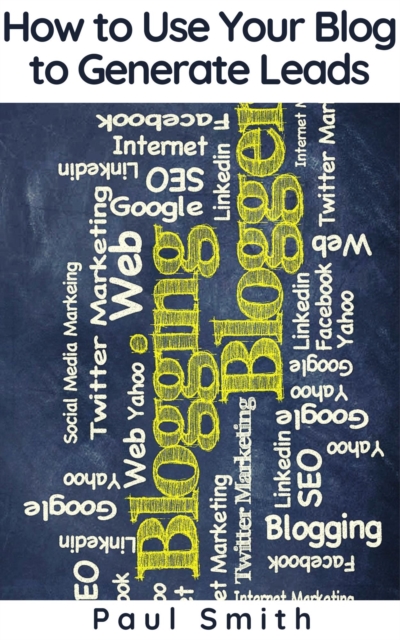 How to Use Your Blog
to Generate Leads
Facebook
Internet
Linkedin
SEO
Google
Linkedin
Blogger
Internet M
Twitter Mar
Web
Social Media Markeing
Twitter Marketing
Web
Blogging
Linkedin
Facebook
Yahoo
Google
Yahoo
Google
Yahoo
Web
Yahoo
Yahoo
Google
Linkedin
Twitter Marketing
et Marketing
Linkedin
SEO
Blogging
Facebook
Internet Marketing
EO
ook
oo
et
Paul Smith